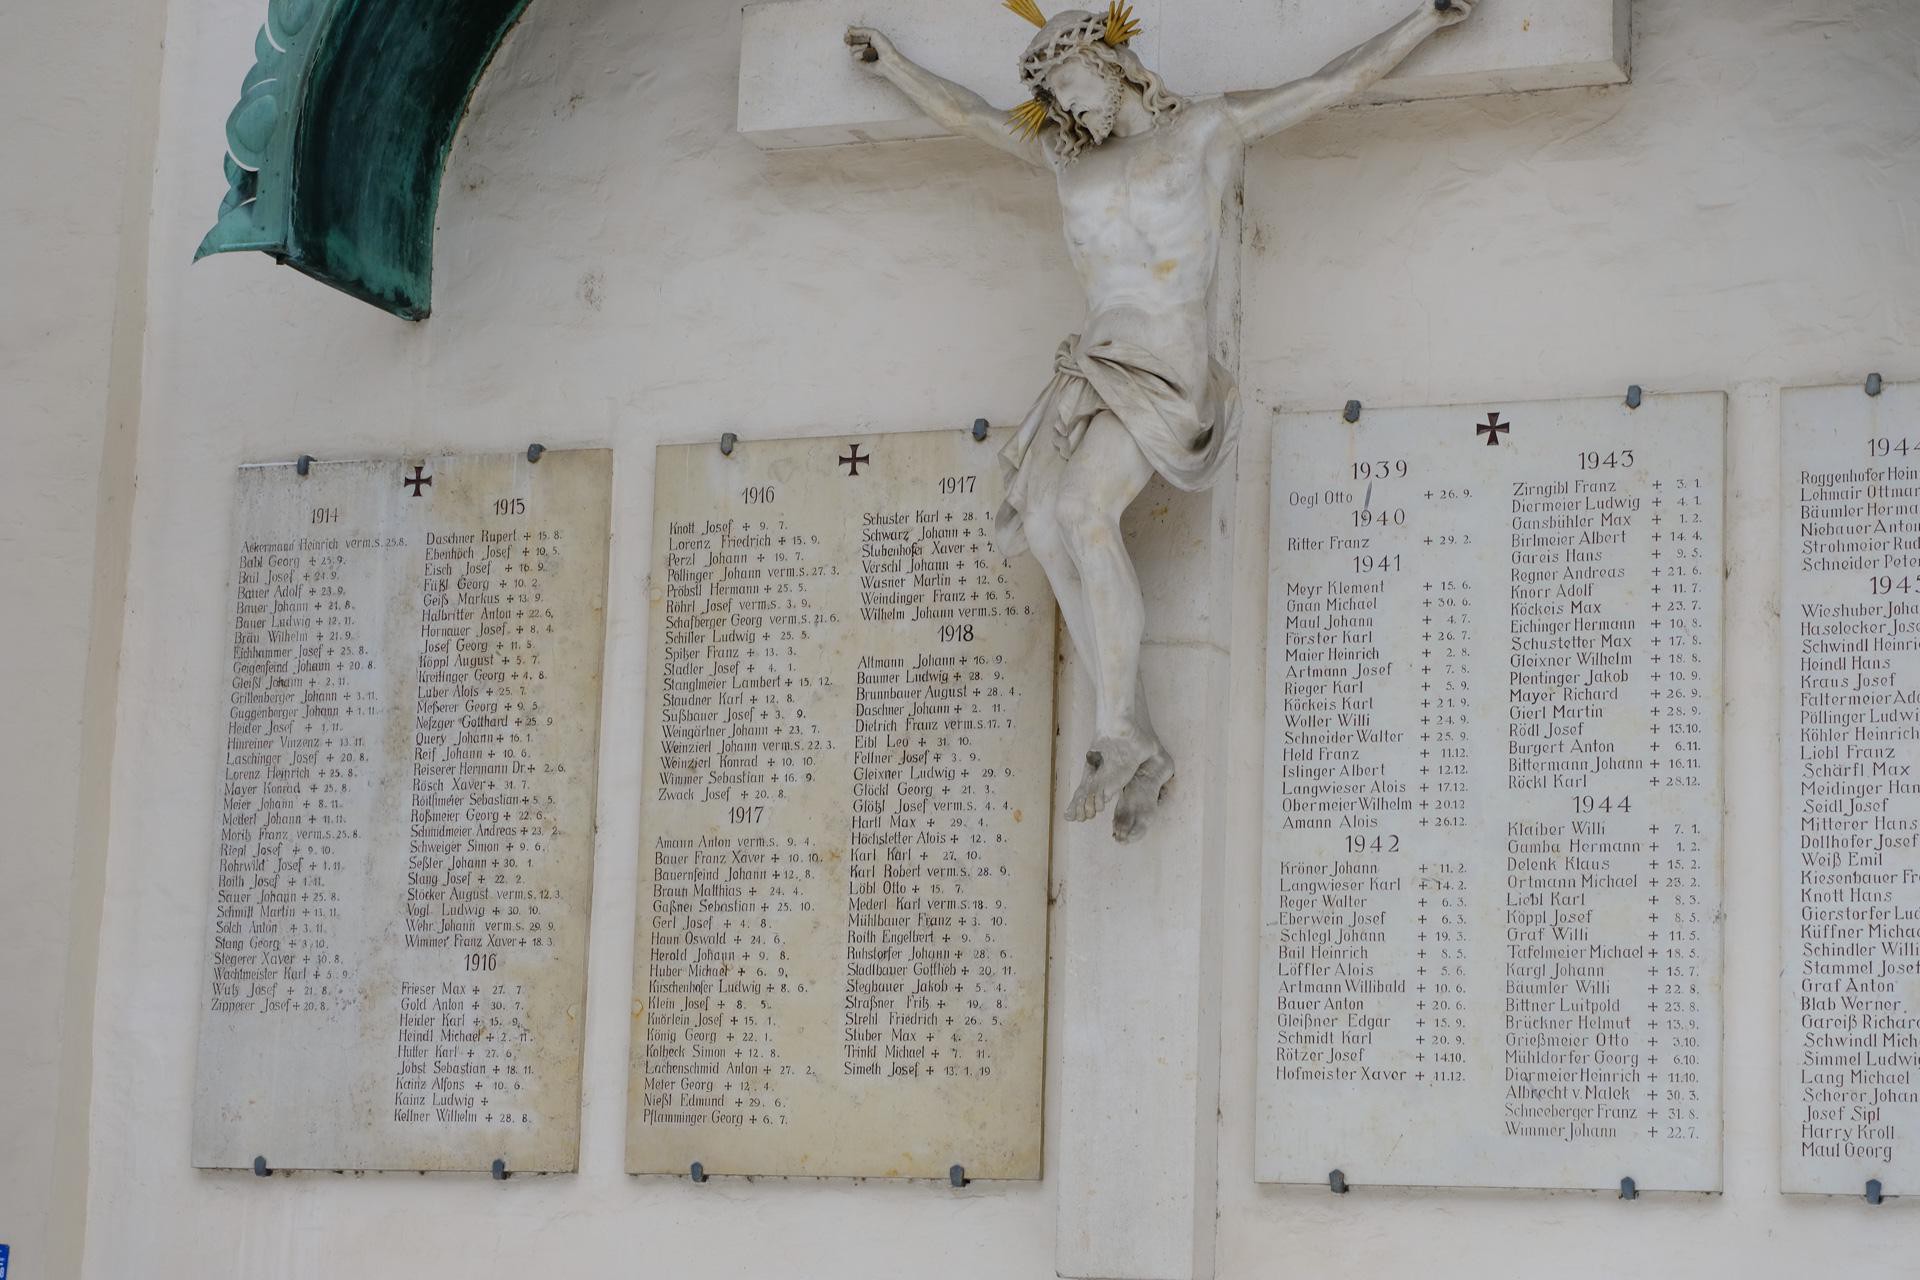 1914
Ackermann Heinrich verm.s. 25.8.
Babl Georg + 25. 9.
Bail Josef + 21. 9.
Bauer Adolf + 23. 9.
Bauer Johann + 21. 8.
Bauer Ludwig + 12. 11.
Bräu Wilhelm + 21. 9.
Eichhammer Josef + 25. 8.
Geigenfeind Johann + 20. 8.
Gleißl Johann + 2. 11.
Grillenberger Johann + 3. 11.
Guggenberger Johann + 1. 11.
Heider Josef + 1. 11.
Hinreiner Vinzenz + 13. 11.
Laschinger Josef + 20. 8.
Lorenz Heinrich + 25. 8.
Mayer Konrad + 25. 8.
Meier Johann + 8. 11.
Mederl Johann + 11. 11.
Moritz Franz verm.s. 25. 8.
Riepl Josef + 9. 10.
Rohrwild Josef + 1. 11.
Roith Josef + 1. 11.
Sauer Johann + 25. 8.
Schmitt Martin + 13. 11.
Sölch Anton + 3. 11.
Stang Georg + 3. 10.
Stegerer Xaver + 30. 8.
Wachtmeister Karl + 5. 9.
Wutz Josef + 21. 8.
Zipperer Josef + 20. 8.
1915
Daschner Rupert + 15. 8.
Ebenhöch Josef + 10. 5.
Eisch Josef + 16. 9.
Füßl Georg + 10. 2.
Geiß Markus + 13. 9.
Halbritter Anton + 22. 6.
Hornauer Josef + 8. 4.
Josef Georg + 11. 5.
Köppl August + 5. 7.
Kreitinger Georg + 4. 8.
Luber Alois + 25. 7.
Meßerer Georg + 9. 5.
Neßzger Gotthard + 25. 9.
Query Johann + 16. 1.
Reif Johann + 10. 6.
Reiserer Hermann Dr. + 2. 6.
Rösch Xaver + 31. 7.
Röithmeier Sebastian + 5. 5.
Roßmeier Georg + 22. 6.
Schmidmeier Andreas + 23. 2.
Schweiger Simon + 9. 6.
Seßler Johann + 30. 1.
Stang Josef + 22. 2.
Stöcker August verm.s. 12. 3.
Vogl Ludwig + 30. 10.
Wehr Johann verm.s. 29. 9.
Wimmer Franz Xaver + 18. 3.
1916
Frieser Max + 27. 7
Gold Anton + 30. 7.
Heider Karl + 15. 9.
Heindl Michael + 2. 11.
Hutter Karl + 27. 6.
Jobst Sebastian + 18. 11.
Kainz Alfons + 10. 6.
Kainz Ludwig +
Kellner Wilhelm + 28. 8.
1916
Knott Josef + 9. 7.
Lorenz Friedrich + 15. 9.
Perzl Johann + 19. 7.
Pöllinger Johann verm.s. 27. 3.
Pröbstl Hermann + 25. 5.
Röhrl Josef verm.s. 3. 9.
Schafberger Georg verm.s. 21. 6.
Schiller Ludwig + 25. 5.
Spitzer Franz + 13. 3.
Stadler Josef + 4. 1.
Stanglmeier Lambert + 15. 12.
Staudner Karl + 12. 8.
Süßbauer Josef + 3. 9.
Weingärtner Johann + 23. 7.
Weinzierl Johann verm.s. 22. 3.
Weinzierl Konrad + 10. 10.
Wimmer Sebastian + 16. 9.
Zwack Josef + 20. 8.
1917
Amann Anton verm.s. 9. 4.
Bauer Franz Xaver + 10. 10.
Bauernfeind Johann + 12. 8.
Braun Matthias + 24. 4.
Gaßner Sebastian + 25. 10.
Gerl Josef + 4. 8.
Haun Oswald + 24. 6.
Herold Johann + 9. 8.
Huber Michael + 6. 9.
Kirschenhofer Ludwig + 8. 6.
Klein Josef + 8. 5.
Knörlein Josef + 15. 1.
König Georg + 22. 1.
Kolbeck Simon + 12. 8.
Lachenschmid Anton + 27. 2.
Meier Georg + 12. 4.
Nießl Edmund + 29. 6.
Pflamminger Georg + 6. 7.
1917
Schuster Karl + 28. 1.
Schwarz Johann + 3.
Stubenhofer Xaver + 7.
Verschl Johann + 16. 4.
Wasner Martin + 12. 6.
Weindinger Franz + 16. 5.
Wilhelm Johann verm.s. 16. 8.
1918
Altmann Johann + 16. 9.
Baumer Ludwig + 28. 9.
Brunnbauer August + 28. 4.
Daschner Johann + 2. 11.
Dietrich Franz verm.s. 17. 7.
Eibl Leo + 31. 10.
Fellner Josef + 3. 9.
Gleixner Ludwig + 29. 9.
Glöckl Georg + 21. 3.
Glötzl Josef verm.s. 4. 4.
Hartl Max + 29. 4.
Höchstetter Alois + 12. 8.
Karl Karl + 27. 10.
Karl Robert verm.s. 28. 9.
Löbl Otto + 15. 7.
Mederl Karl verm.s. 18. 9.
Mühlbauer Franz + 3. 10.
Roith Engelbert + 9. 5.
Ruhstorfer Johann + 28. 6.
Stadlbauer Gottlieb + 20. 11.
Stegbauer Jakob + 5. 4.
Straßner Fritz + 19. 8.
Strehl Friedrich + 26. 5.
Stuber Max + 4. 2.
Trinkl Michael + 7. 11.
Simeth Josef + 13. 1. 19
1939
Oegl Otto + 26. 9.
1940
Ritter Franz + 29. 2.
1941
Meyr Klement + 15. 6.
Gnan Michael + 30. 6.
Maul Johann + 4. 7.
Förster Karl + 26. 7.
Maier Heinrich + 2. 8.
Artmann Josef + 7. 8.
Rieger Karl + 5. 9.
Köckeis Karl + 21. 9.
Woller Willi + 24. 9.
Schneider Walter + 25. 9.
Held Franz + 11.12.
Islinger Albert + 12.12.
Langwieser Alois + 17.12.
Obermeier Wilhelm + 20.12
Amann Alois + 26.12.
1942
Kröner Johann + 11. 2.
Langwieser Karl + 14. 2.
Reger Walter + 6. 3.
Eberwein Josef + 6. 3.
Schlegl Johann + 19. 3.
Bail Heinrich + 8. 5.
Löffler Alois + 5. 6.
Artmann Willibald + 10. 6.
Bauer Anton + 20. 6.
Gleißner Edgar + 15. 9.
Schmidt Karl + 20. 9.
Rötzer Josef + 14.10.
Hofmeister Xaver + 11.12.
1943
Zirngibl Franz + 3. 1.
Diermeier Ludwig + 4. 1.
Gansbühler Max + 1. 2.
Birlmeier Albert + 14. 4.
Gareis Hans + 9. 5.
Regner Andreas + 21. 6.
Knorr Adolf + 11. 7.
Köckeis Max + 23. 7.
Eichinger Hermann + 10. 8.
Schustetter Max + 17. 8.
Gleixner Wilhelm + 18. 8.
Plentinger Jakob + 10. 9.
Mayer Richard + 26. 9.
Gierl Martin + 28. 9.
Rödl Josef + 13.10.
Burgert Anton + 6.11.
Bittermann Johann + 16.11.
Röckl Karl + 28.12.
1944
Klaiber Willi + 7. 1.
Gamba Hermann + 1. 2.
Delenk Klaus + 15. 2.
Ortmann Michael + 23. 2.
Liebl Karl + 8. 3.
Köppl Josef + 8. 5.
Graf Willi + 11. 5.
Tafelmeier Michael + 18. 5.
Kargl Johann + 15. 7.
Bäumler Willi + 22. 8.
Bittner Luitpold + 23. 8.
Brückner Helmut + 13. 9.
Grießmeier Otto + 3.10.
Mühldorfer Georg + 6.10.
Diermeier Heinrich + 11.10.
Albrecht v. Malek + 30. 3.
Schneeberger Franz + 31. 8.
Wimmer Johann + 22. 7.
1944
Roggenhofer Hein
Lehmair Ottmar
Bäumler Herma
Niebauer Anton
Strohmeier Rud
Schneider Peter
1945
Wieshuber Joha
Haselecker Jose
Schwindl Heinri
Heindl Hans
Kraus Josef
Faltermeier Ado
Pöllinger Ludwi
Köhler Heinrich
Liebl Franz
Schärfl Max
Meidinger Han
Seidl Josef
Mitterer Hans
Dollhofer Josef
Weiß Emil
Kiesenbauer Fr
Knott Hans
Gierstorfer Lud
Küffner Michae
Schindler Willi
Stammel Josef
Graf Anton
Blab Werner
Gareiß Richard
Schwindl Mich
Simmel Ludwi
Lang Michael
Scherer Johan
Josef Sipl
Harry Kroll
Maul Georg